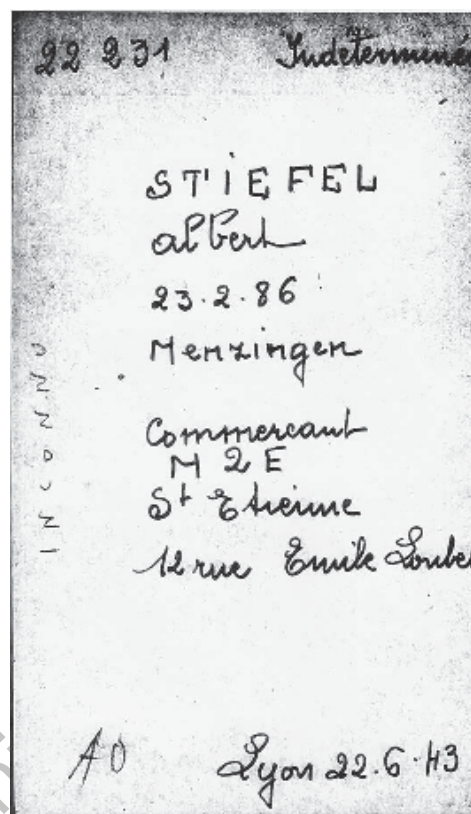 22 231 Indéterminé
STIEFEL
albert
23.2.86
Menzingen
Commercant
M 2 E
St Etienne
12 rue Emile Loubet
INCONNU
AO Lyon 22.6.43